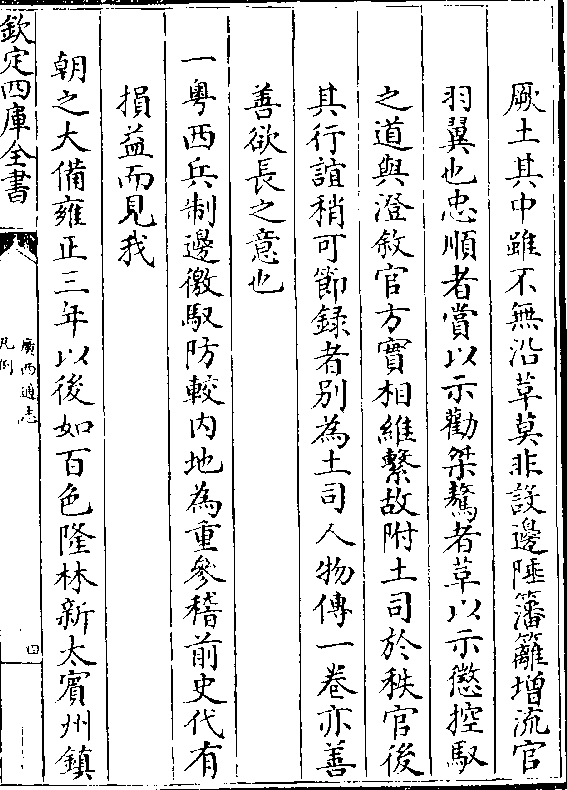 厥土其中雖不無沿革莫非設邊陲籓籬增流官
羽翼也忠順者賞以示勸桀驁者革以示懲控馭
之道與澄敘官方實相維繫故附土司於秩官後
其行誼稍可節録者别為土司人物傳一卷亦善
善欲長之意也
一粤西兵制邊徼馭防較内地為重參稽前史代有
損益而見我
朝之大備雍正三年以後如百色隆林新太賓州鎮
欽定四庫全書
廣西通志
凡例
四